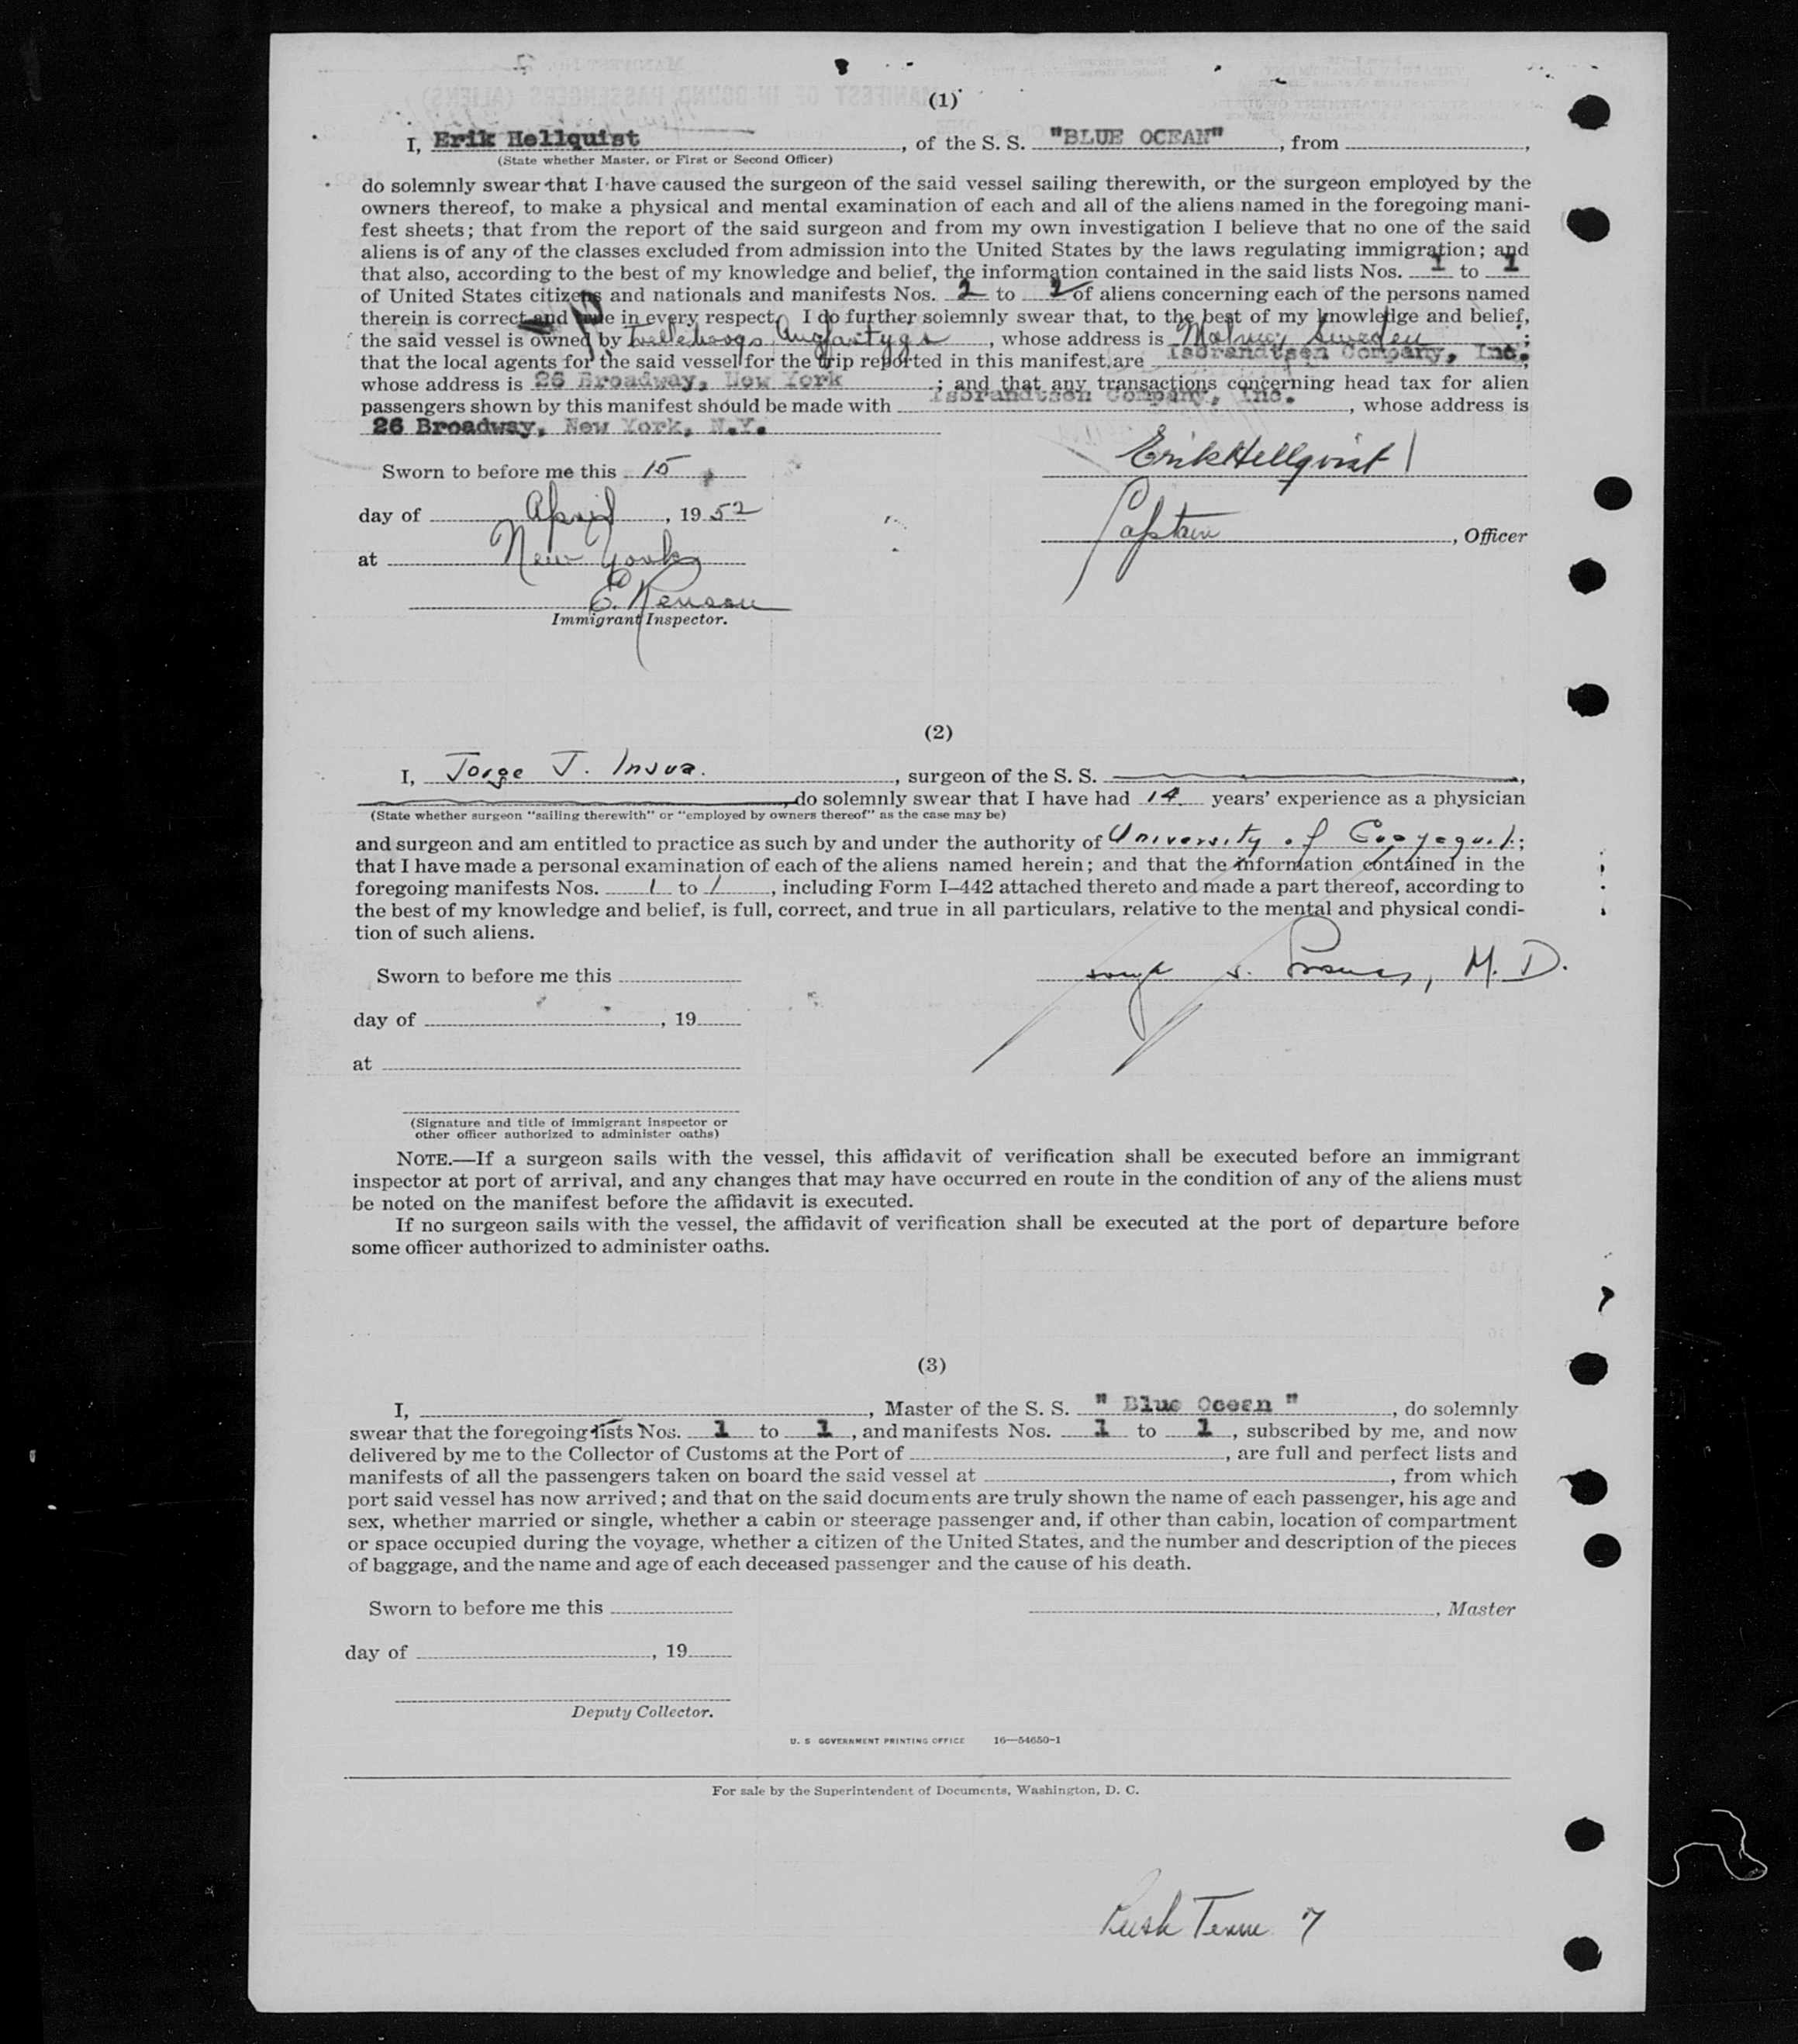 (1)
I, Erik Hellquist, of the S. S. "BLUE OCEAN", from
(State whether Master, or First or Second Officer)
do solemnly swear that I have caused the surgeon of the said vessel sailing therewith, or the surgeon employed by the
owners thereof, to make a physical and mental examination of each and all of the aliens named in the foregoing mani-
fest sheets; that from the report of the said surgeon and from my own investigation I believe that no one of the said
aliens is of any of the classes excluded from admission into the United States by the laws regulating immigration; and
that also, according to the best of my knowledge and belief, the information contained in the said lists Nos. 1 to 1
of United States citizens and nationals and manifests Nos. 2 to 2 of aliens concerning each of the persons named
therein is correct and true in every respect. I do further solemnly swear that, to the best of my knowledge and belief,
the said vessel is owned by Trelleborgs Angfartygs, whose address is Malmoe, Sweden;
that the local agents for the said vessel for the trip reported in this manifest, are Isbrandtsen Company, Inc.
whose address is 26 Broadway, New York; and that any transactions concerning head tax for alien
passengers shown by this manifest should be made with Isbrandtsen Company, Inc., whose address is
26 Broadway, New York, N.Y.
Sworn to before me this 15
Erik Hellqvist
day of April, 1952
Captain, Officer
at New York
E.
Immigrant Inspector.
(2)
I, Jorge J. Insua., surgeon of the S. S.
, do solemnly swear that I have had 14 years' experience as a physician
(State whether surgeon "sailing therewith" or "employed by owners thereof" as the case may be)
and surgeon and am entitled to practice as such by and under the authority of University of Guayaquil;
that I have made a personal examination of each of the aliens named herein; and that the information contained in the
foregoing manifests Nos. 1 to 1, including Form I–442 attached thereto and made a part thereof, according to
the best of my knowledge and belief, is full, correct, and true in all particulars, relative to the mental and physical condi-
tion of such aliens.
Sworn to before me this
M. D.
day of , 19
at
(Signature and title of immigrant inspector or
other officer authorized to administer oaths)
NOTE.—If a surgeon sails with the vessel, this affidavit of verification shall be executed before an immigrant
inspector at port of arrival, and any changes that may have occurred en route in the condition of any of the aliens must
be noted on the manifest before the affidavit is executed.
If no surgeon sails with the vessel, the affidavit of verification shall be executed at the port of departure before
some officer authorized to administer oaths.
(3)
I, , Master of the S. S. "Blue Ocean", do solemnly
swear that the foregoing lists Nos. 1 to 1, and manifests Nos. 1 to 1, subscribed by me, and now
delivered by me to the Collector of Customs at the Port of , are full and perfect lists and
manifests of all the passengers taken on board the said vessel at , from which
port said vessel has now arrived; and that on the said documents are truly shown the name of each passenger, his age and
sex, whether married or single, whether a cabin or steerage passenger and, if other than cabin, location of compartment
or space occupied during the voyage, whether a citizen of the United States, and the number and description of the pieces
of baggage, and the name and age of each deceased passenger and the cause of his death.
Sworn to before me this
, Master
day of , 19
Deputy Collector.
U. S GOVERNMENT PRINTING OFFICE 16—54650-1
For sale by the Superintendent of Documents, Washington, D. C.